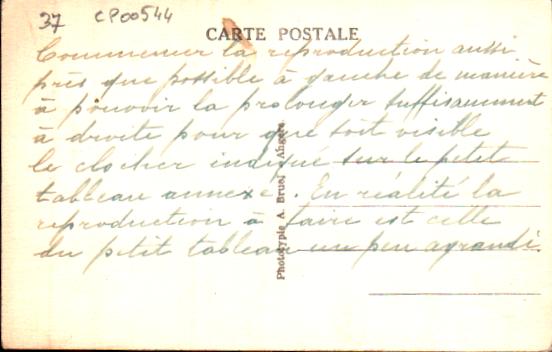 37 CP00544
CARTE POSTALE
Commencer la reproduction aussi
près que possible à gauche de manière
à pouvoir la prolonger suffisamment
à droite pour que soit visible
le clocher indiqué sur le petit
tableau annexé. En réalité la
reproduction à faire est celle
du petit tableau un peu agrandi.
Phototypie A. Bruel Angers